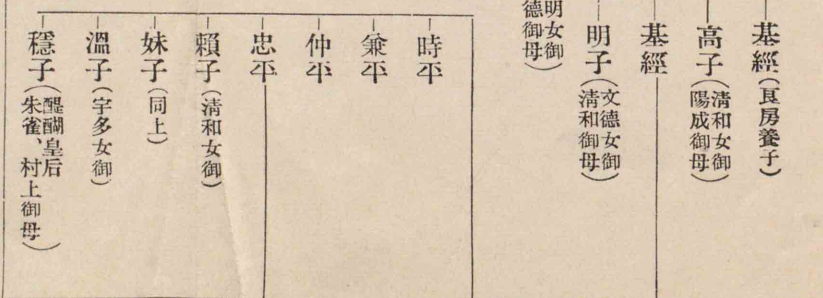 基經（良房養子）
高子（清和女御
陽成御母）
基經
明子（文德女御
清和御母）
明女御
德御母）
時平
兼平
仲平
忠平
賴子（清和女御）
妹子（同上）
溫子（宇多女御）
穩子（醍醐皇后
朱雀、村上御母）